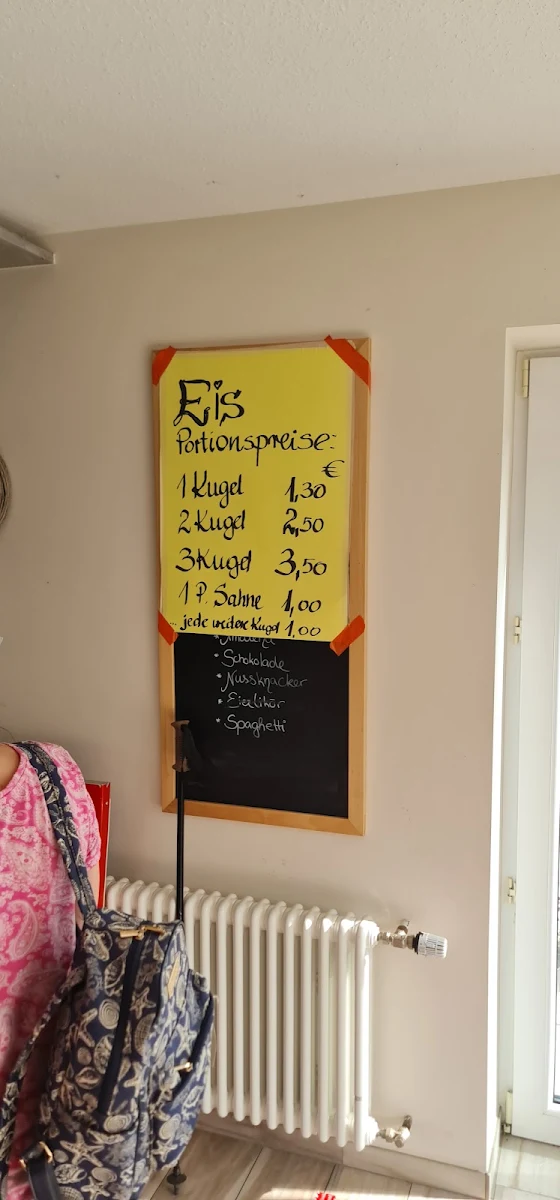 Eis
Portionspreise:
€
1 Kugel 1,30
2 Kugel 2,50
3 Kugel 3,50
1 P. Sahne 1,00
... jede weitere Kugel 1,00
* Schokolade
* Nussknacker
* Eierlikör
* Spaghetti